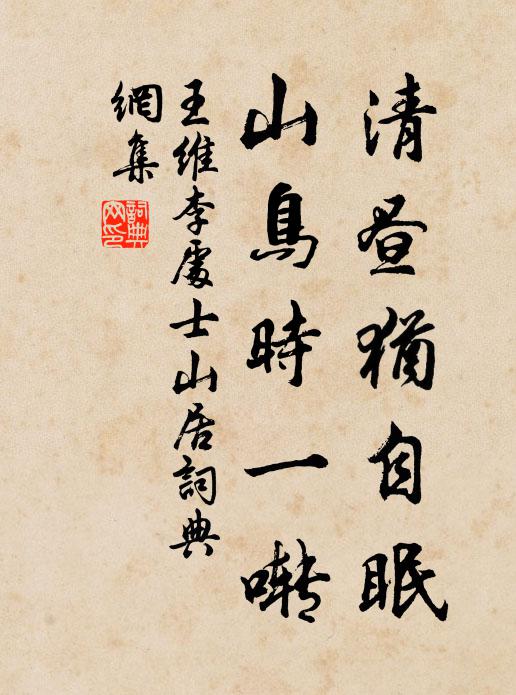 清昼猶自眠
山鳥時一囀
王維李處士山居詞典
網集
詞典
网印